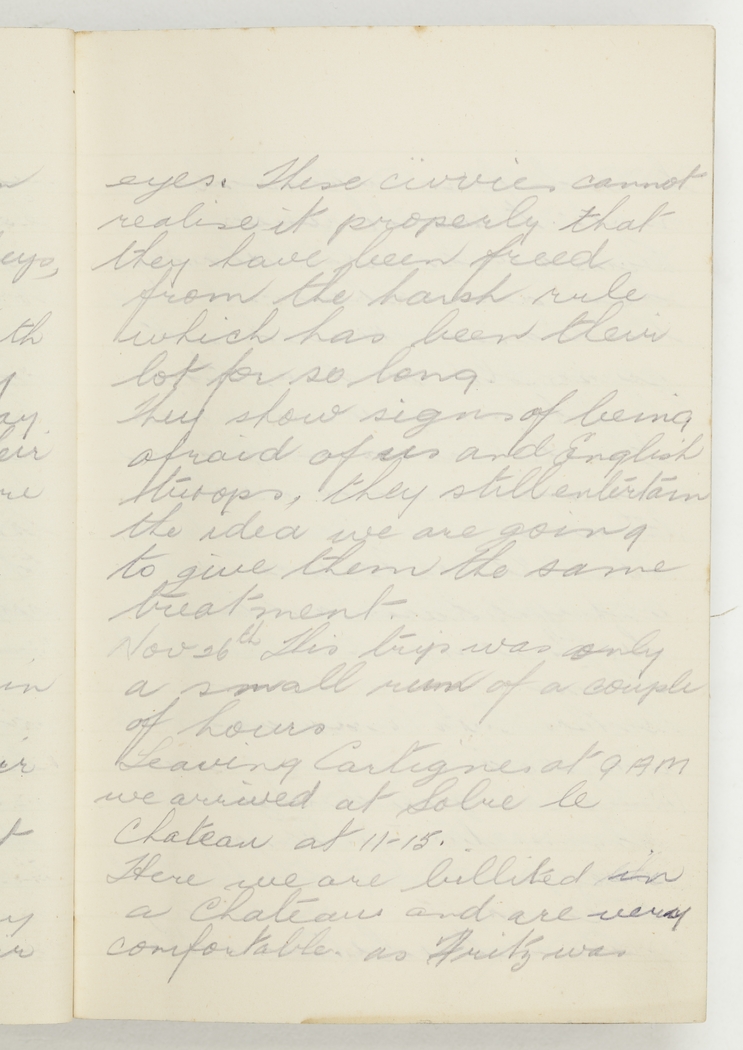 eyes. These civvies cannot
realise it properly that
they have been freed
from the harsh rule
which has been their
lot for so long.
They show signs of being
afraid of us and English
troops, they still entertain
the idea we are going
to give them the same
treatment.
Nov 26th This trip was only
a small run of a couple
of hours
Leaving Cartignes at 9 AM
we arrived at Solre le
Chateau at 11-15.
Here we are billited in
a Chateau and are very
comfortable as Fritz was